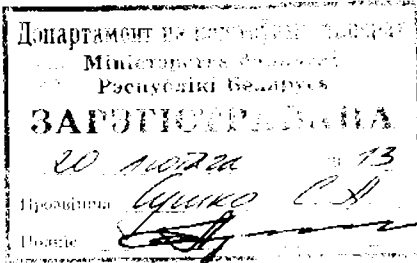 Дэпартамент па каштоўных паперах
Міністэрства фінансаў
Рэспублікі Беларусь
ЗАРЭГІСТРАВАНА
20 лютага 13
Прозвішча Сушко С.А
Подпіс